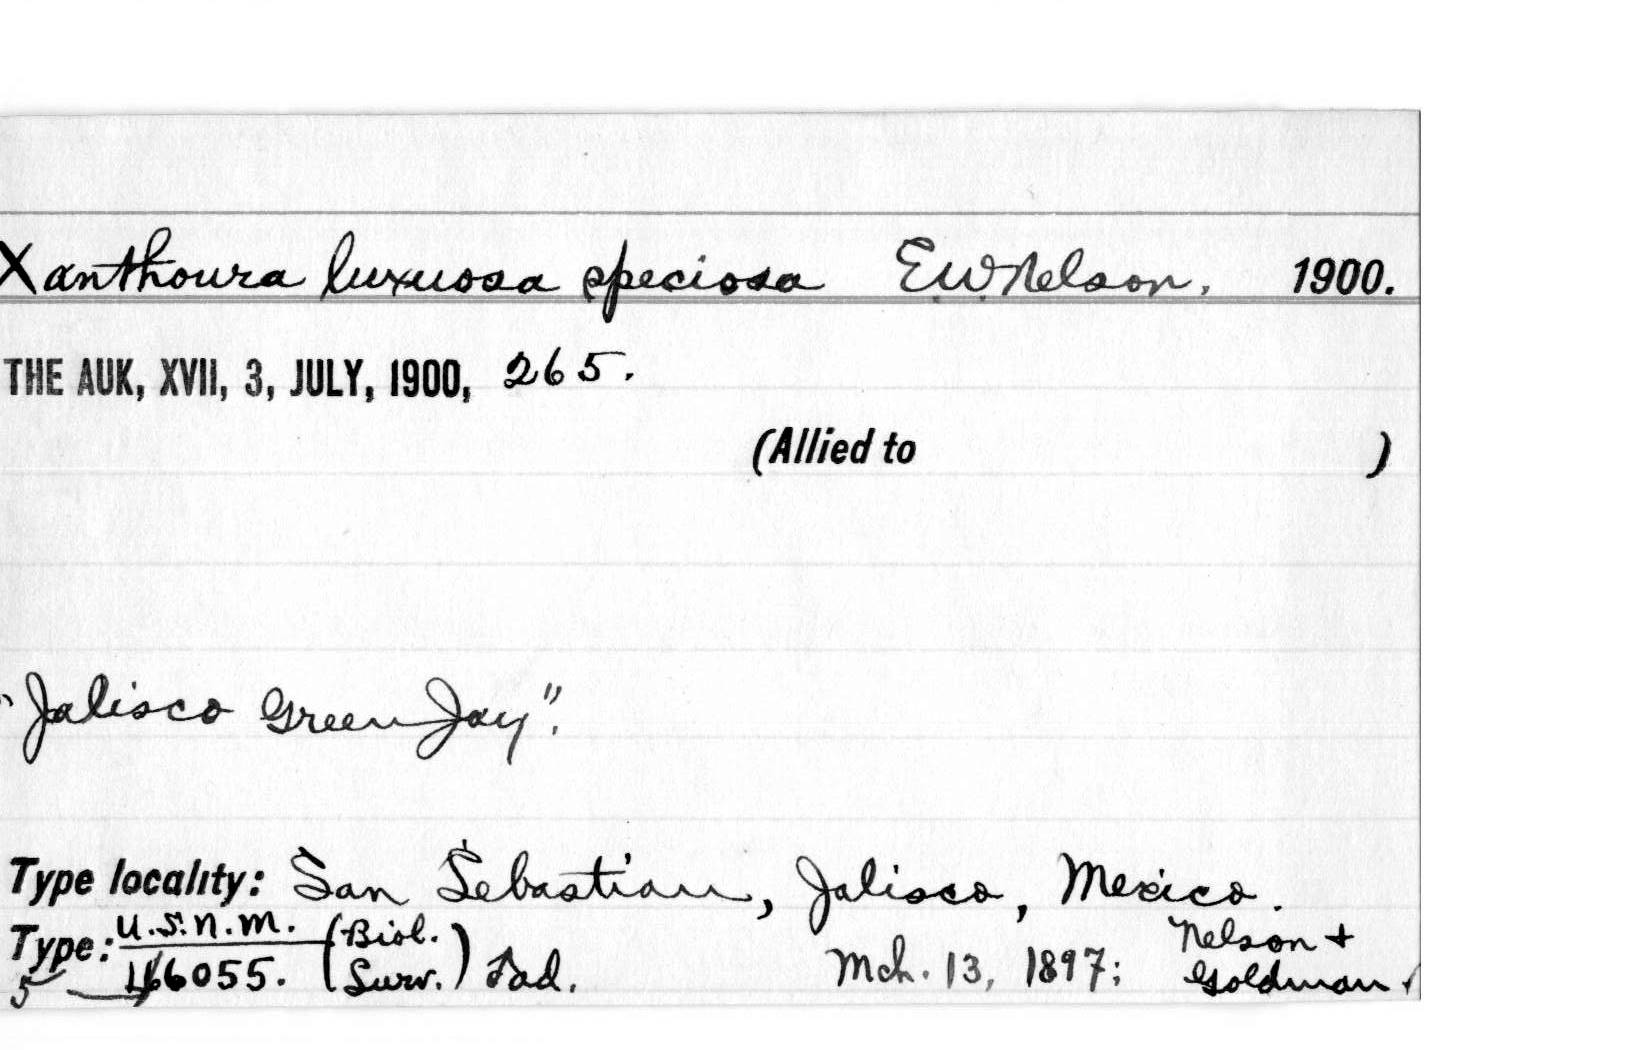 Xanthoura luxuosa speciosa E.W. Nelson. 1900.
THE AUK, XVII, 3, JULY, 1900, 265.
(Allied to )
"Jalisco Green Jay".
Type locality: San Sebastian, Jalisco, Mexico.
Type: U.S.N.M. (Biol. Surv.) ad. Mch. 13, 1897; Nelson + Goldman
166055.
5